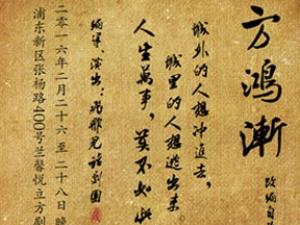 方鸿渐
改编自
城外的人想冲进去，
城里的人想逃出来。
人生萬事，莫不如此
编导、演出：
话剧团
二零一六年二月二十六至二十八日晚
浦东新区张杨路400号兰馨悦立方剧